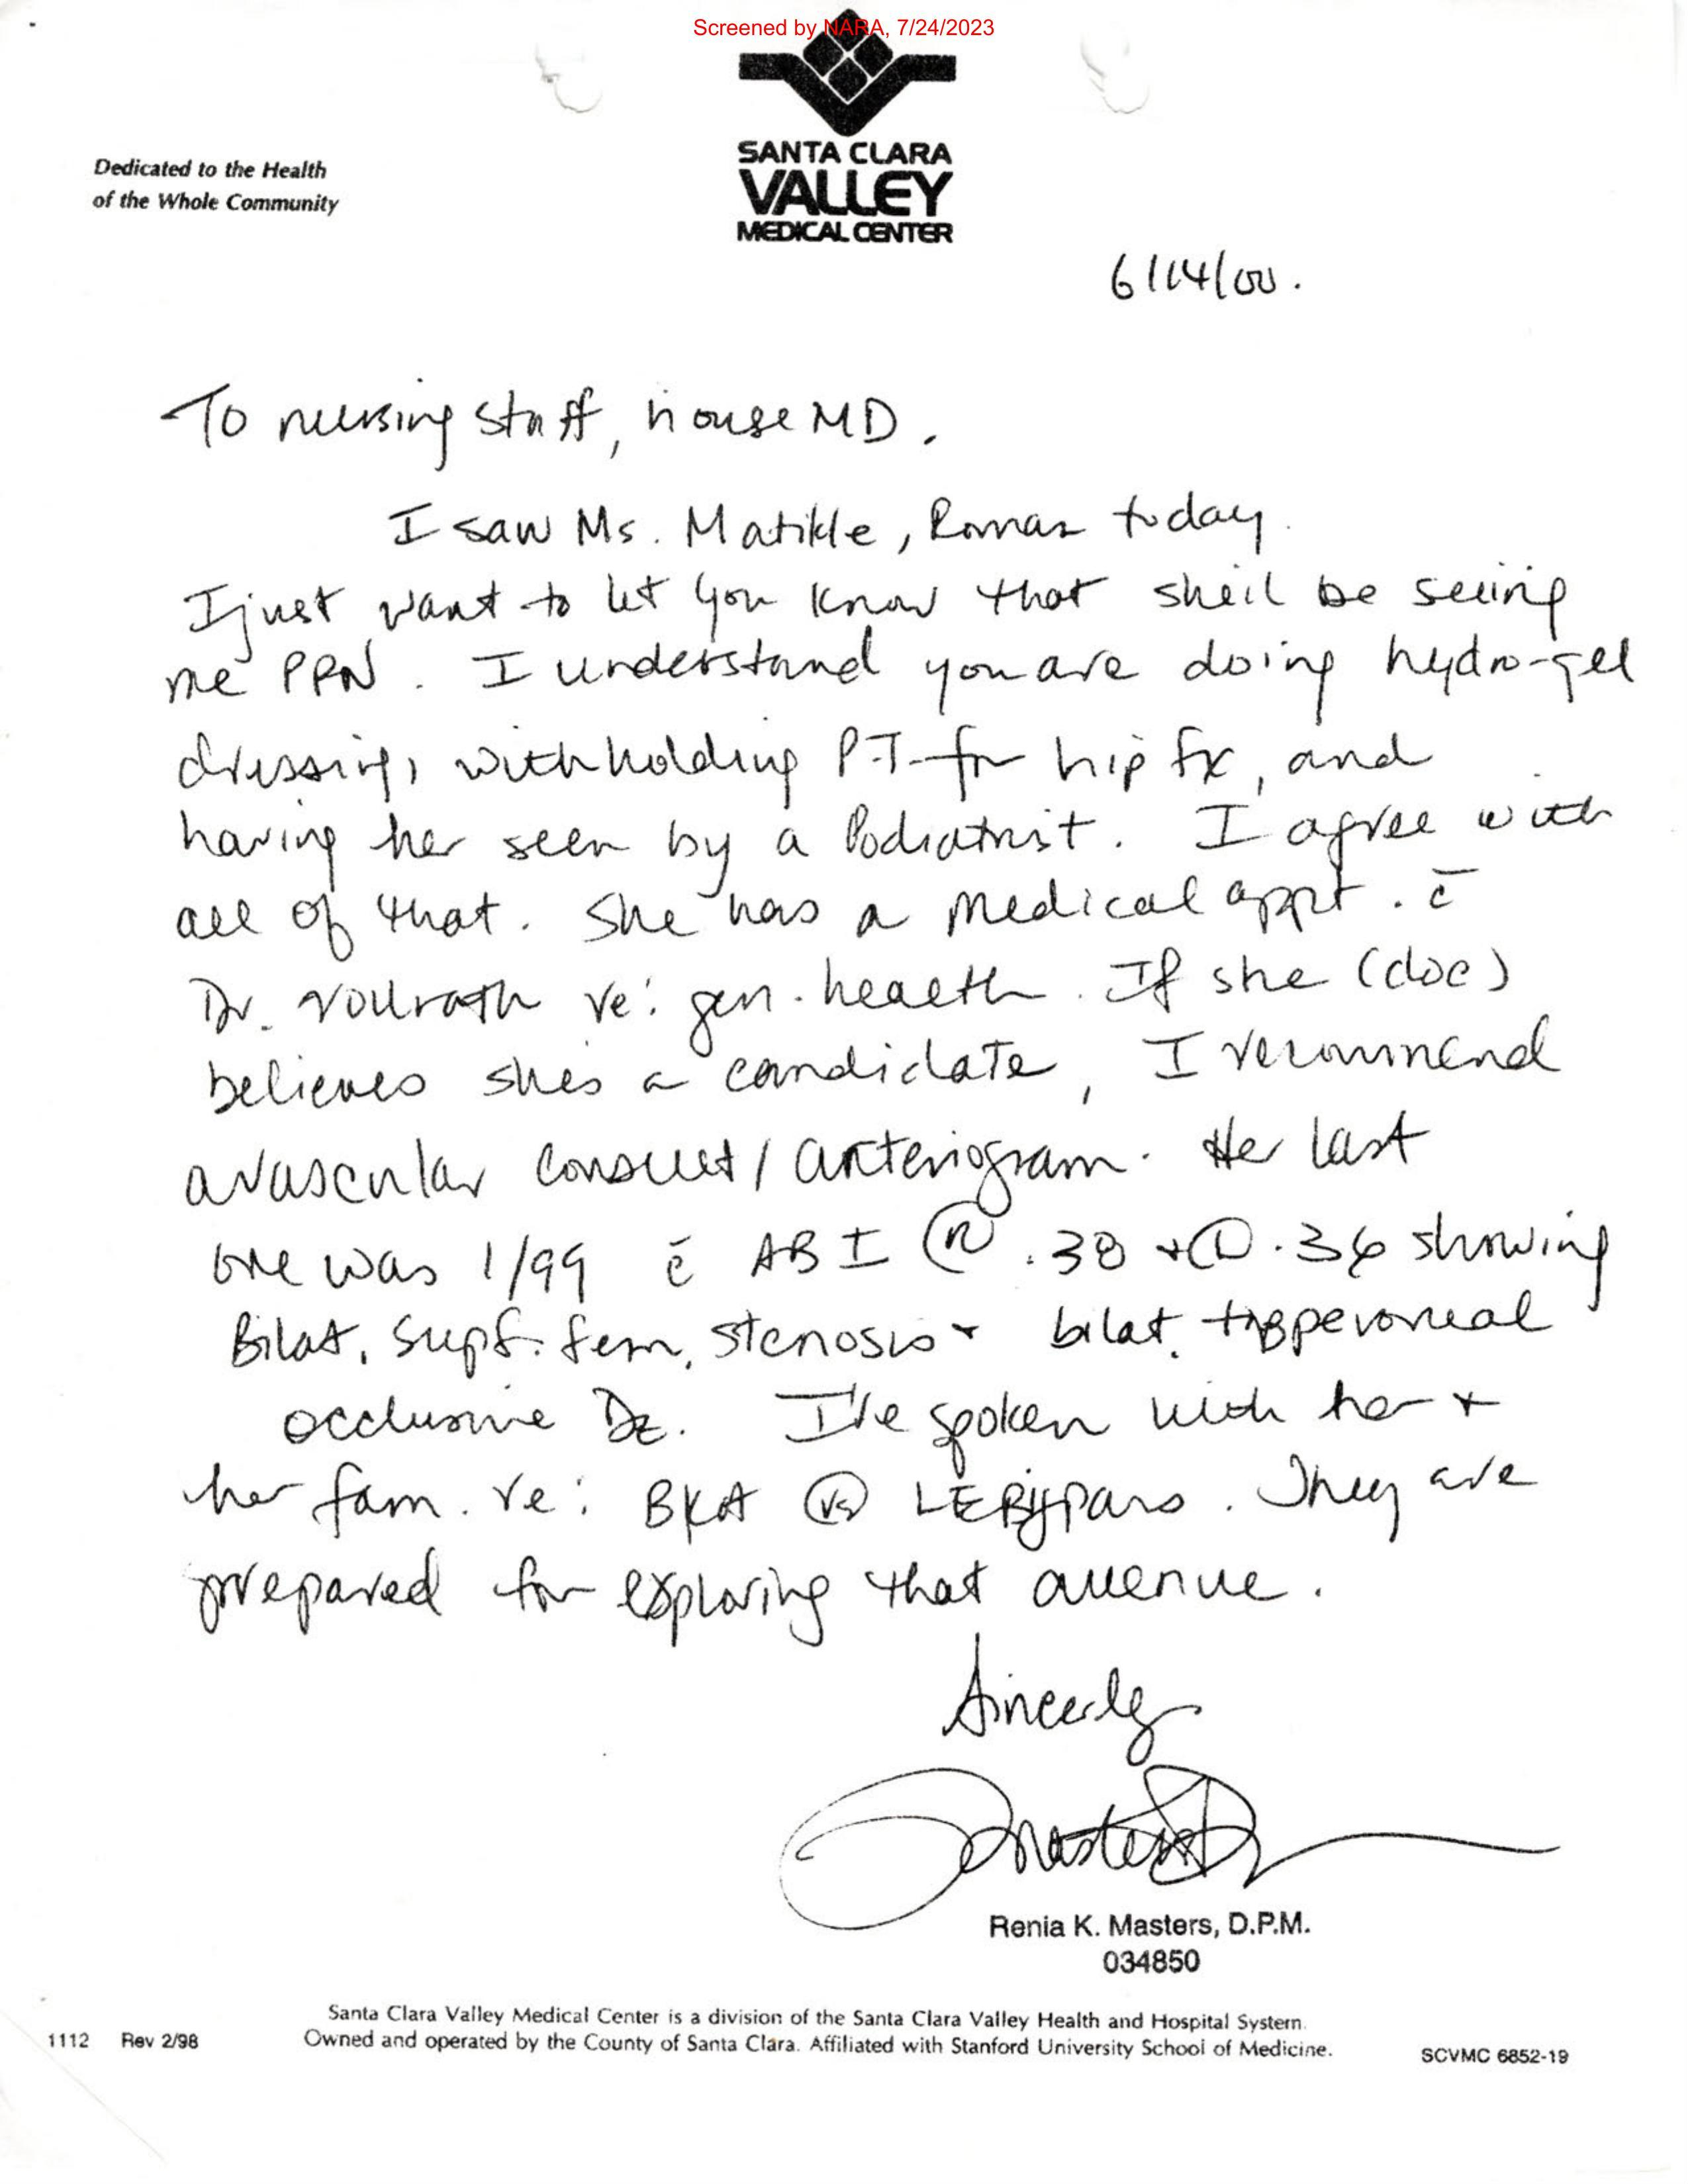 Screened by NARA, 7/24/2023
Dedicated to the Health
of the Whole Community
SANTA CLARA
VALLEY
MEDICAL CENTER
6/14/00.
To nursing staff, house MD.
I saw Ms. Matikle, Romaz today.
I just want to let you know that she'll be seeing
me PRN. I understand you are doing hydro-gel
dressing, withholding P.T. for hip fx, and
having her seen by a Podiatrist. I agree with
all of that. She has a medical appt. c̄
Dr. Vollrath re: gen. health. If she (doc)
believes shes a candidate, I recommend
a vascular consult/arteriogram. Her last
one was 1/99 c̄ ABI Ⓡ .38 + Ⓛ .36 showing
Bilat. Supf. fem. stenosis + bilat. tibperoneal
occlusive Dz. I've spoken with her +
her fam. re: BKA vs LE Bypass. They are
prepared for exploring that avenue.
Sincerely
Renia K. Masters, D.P.M.
034850
Santa Clara Valley Medical Center is a division of the Santa Clara Valley Health and Hospital System.
1112 Rev 2/98 Owned and operated by the County of Santa Clara. Affiliated with Stanford University School of Medicine. SCVMC 6852-19